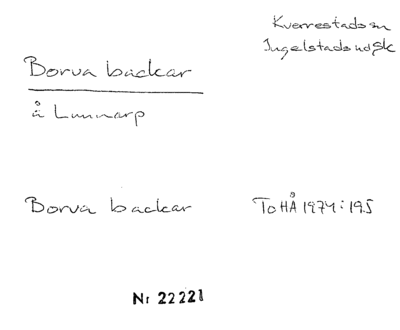 Kverrestads sn
Ingelstads hd Sk
Borva backar
å Lunnarp
Borva backar
ToHÅ 1974:195
Nr 22221